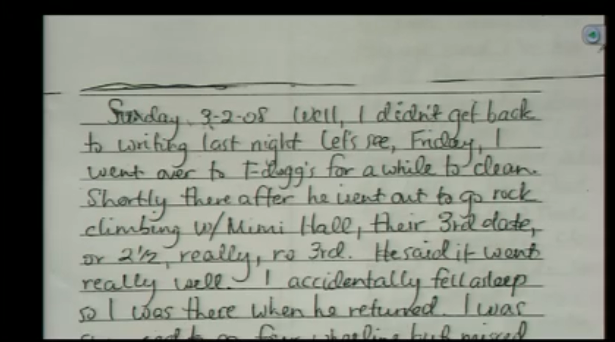 Sunday, 3-2-08 Well, I didn't get back
to writing last night Let's see, Friday, I
went over to F-dogg's for a while to clean.
Shortly there after he went out to go rock
climbing w/Mimi Hall, their 3rd date,
or 2 1/2, really, ro 3rd. He said it went
really well. I accidentally fell asleep
so I was there when he returned. I was
to go four wheeling but missed